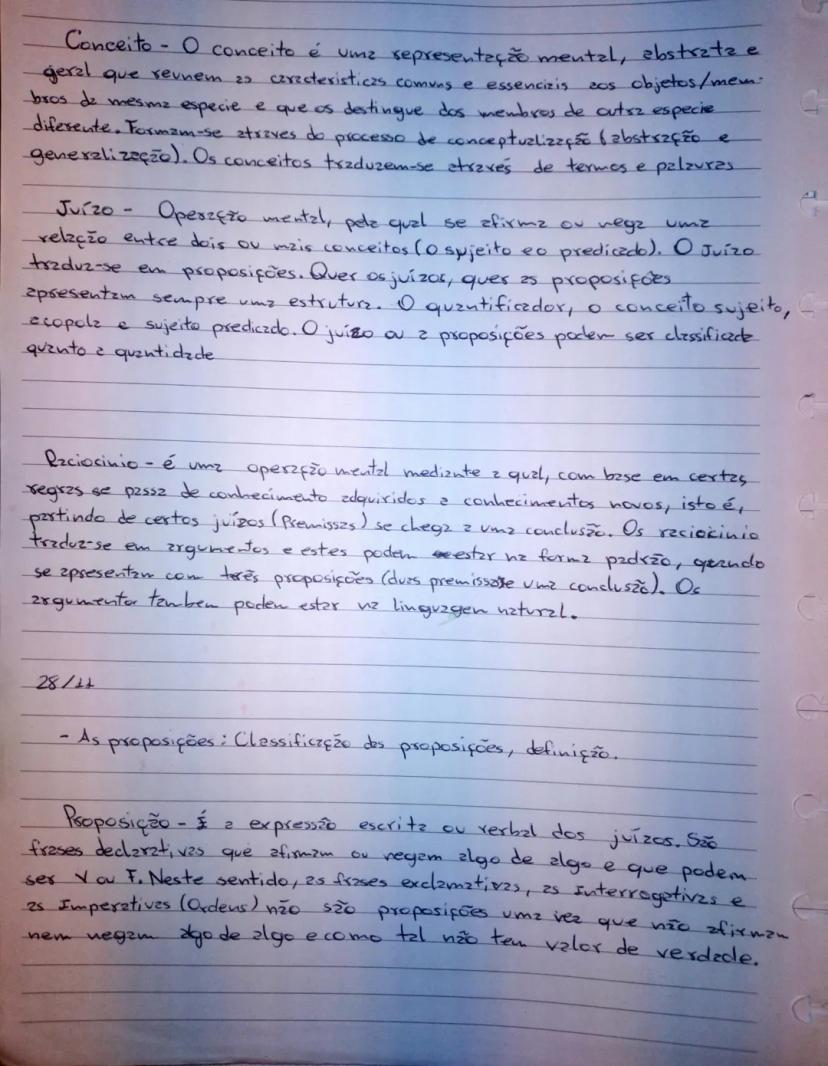 Conceito - O conceito é uma representação mental, abstrata e
geral que reunem as caracteristicas comuns e essenciais aos objetos/mem-
bros da mesma especie e que os destingue dos membros de outra especie
diferente. Formam-se atraves do processo de conceptualização (abstração e
generalização). Os conceitos traduzem-se através de termos e palavras
Juízo - Operação mental, pela qual se afirma ou nega uma
relação entre dois ou mais conceitos (o sujeito e o predicado). O Juízo
traduz-se em proposições. Quer os juízos, quer as proposições
apresentam sempre uma estrutura. O quantificador, o conceito sujeito,
a copola e sujeito predicado. O juízo ou a proposições podem ser classificade
quanto a quantidade
Raciocinio - é uma operação mental mediante a qual, com base em certas
regras se passa de conhecimento adquiridos a conhecimentos novos, isto é,
partindo de certos juízos (Premissas) se chega a uma conclusão. Os raciocinio
traduz-se em argumentos e estes podem estar na forma padrão, quando
se apresentam com três proposições (duas premissas e uma conclusão). Os
argumentor tambem podem estar na linguagem natural.
28/11
- As proposições: Classificação das proposições, definição.
Proposição - É a expressão escrita ou verbal dos juízos. São
frases declarativas que afirmam ou negam algo de algo e que podem
ser V ou F. Neste sentido, as frases exclamativas, as Interrogativas e
as Imperativas (Ordens) não são proposições uma vez que não afirmam
nem negam algo de algo e como tal não tem valor de verdade.